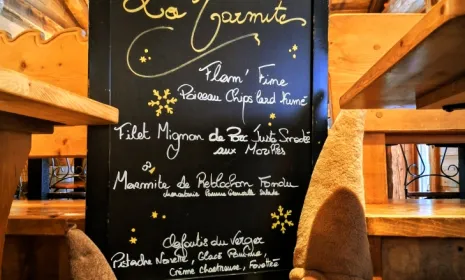 La Marmite
Flam' Fine
Poireau Chips lard fumé
Filet Mignon de Porc Juste Snacké
aux Morilles
Marmite de Reblochon Fondu
charcuterie Pomme Grenaille Salade
Clafoutis du Verger
Pistache Noisette, Glace
Crème Chartreuse,